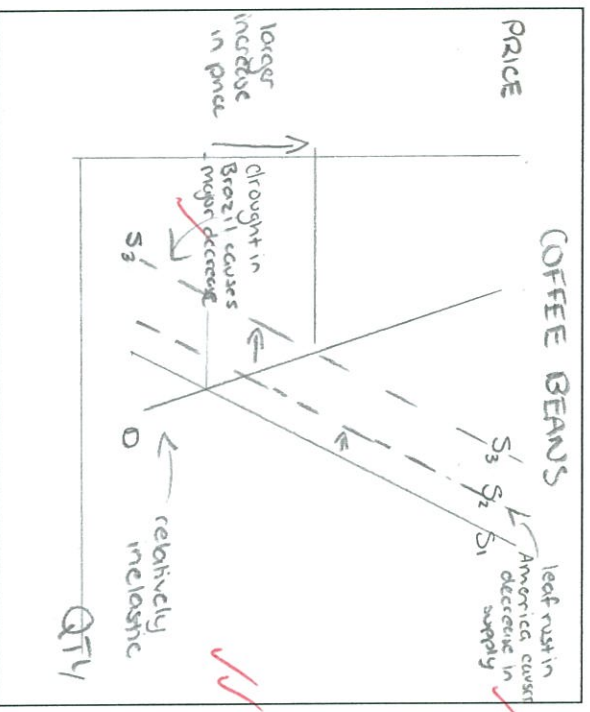 COFFEE BEANS
PRICE
larger
increase
in price
drought in
Brazil causes
major decrease
S3
S3
S2
S1
leaf rust in
America causes
decrease in
supply
D
relatively
inelastic
QTY